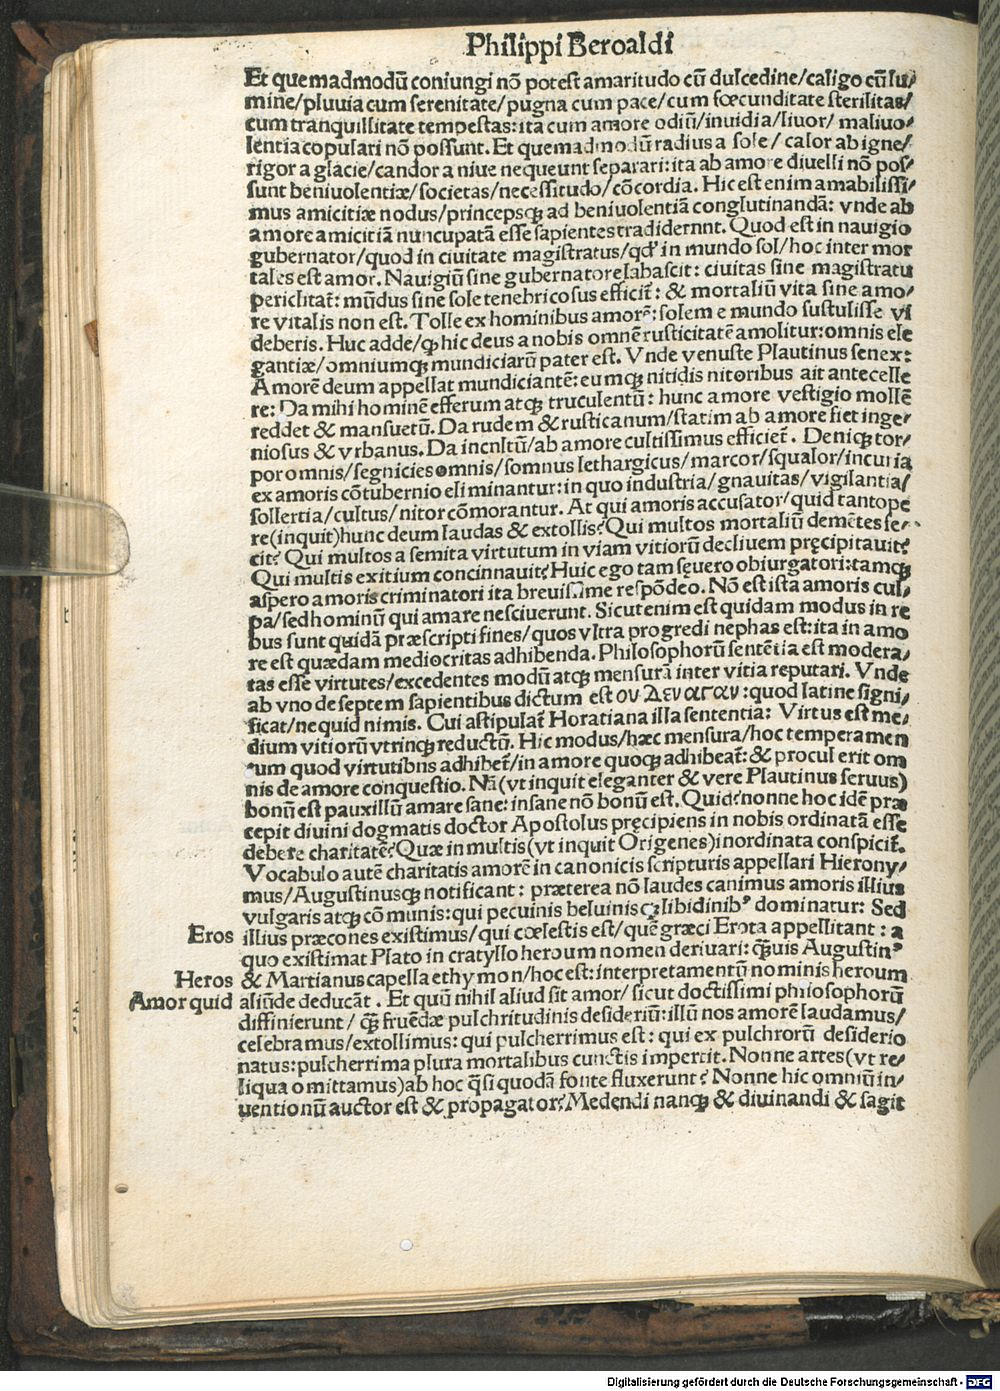 Philippi Beroaldi
Et quemadmodū coniungi nō potest amaritudo cū dulcedine/caligo cū lu/
mine/pluuia cum serenitate/pugna cum pace/cum fœcunditate sterilitas/
cum tranquillitate tempestas: ita cum amore odiū/inuidia/liuor/ maliuo/
lentia copulari nō possunt. Et quemadmodū radius a sole/ calor ab igne/
rigor a glacie/candor a niue nequeunt separari: ita ab amore diuelli nō pos/
sunt beniuolentiæ/societas/necessitudo/cōcordia. Hic est enim amabilissi/
mus amicitiæ nodus/princepsqꝫ ad beniuolentiā conglutinandā: vnde ab
amore amicitiā nuncupatā esse sapientes tradidernnt. Quod est in nauigio
gubernator/quod in ciuitate magistratus/qd' in mundo sol/hoc inter mor
tales est amor. Nauigiū sine gubernatore labascit: ciuitas sine magistratu
periclitat᷑: mūdus sine sole tenebricosus efficit᷑: & mortaliū vita sine amo/
re vitalis non est. Tolle ex hominibus amorē: solem e mundo sustulisse vi
deberis. Huc adde/ꝙ hic deus a nobis omnē rusticitatē amolitur: omnis ele
gantiæ/omniumqꝫ mundiciarū pater est. Vnde venuste Plautinus senex:
Amorē deum appellat mundiciantē: eumqꝫ nitidis nitoribus ait antecelle
re: Da mihi hominē efferum atqꝫ truculentū: hunc amore vestigio mollē
reddet & mansuetū. Da rudem & rusticanum/statim ab amore fiet inge/
niosus & vrbanus. Da incnltū/ab amore cultissimus efficiet᷑. Deniqꝫ tor/
por omnis/segnicies omnis/somnus lethargicus/marcor/squalor/incuria
ex amoris cōtubernio eliminantur: in quo industria/gnauitas/vigilantia/
sollertia/cultus/nitor cōmorantur. At qui amoris accusator/quid tantope
re(inquit)hunc deum laudas & extollis? Qui multos mortaliū demētes fe/
cit? Qui multos a semita virtutum in viam vitiorū decliuem pręcipitauit?
Qui multis exitium concinnauit? Huic ego tam seuero obiurgatori: tamqꝫ
aspero amoris criminatori ita breuissime respōdeo. Nō est ista amoris cul/
pa/sed hominū qui amare nesciuerunt. Sicut enim est quidam modus in re
bus sunt quidā præscripti fines/quos vltra progredi nephas est: ita in amo
re est quædam mediocritas adhibenda. Philosophorū sentētia est modera/
tas esse virtutes/excedentes modū atqꝫ mensurā inter vitia reputari. Vnde
ab vno de septem sapientibus dictum est ου Δεν αγαν: quod latine signi/
ficat/ne quid nimis. Cui astipulat᷑ Horatiana illa sententia: Virtus est me/
dium vitiorū vtrinqꝫ reductū. Hic modus/hæc mensura/hoc temperamen
tum quod virtutibns adhibet᷑/in amore quoqꝫ adhibeat᷑: & procul erit om
nis de amore conquestio. Nā(vt inquit eleganter & vere Plautinus seruus)
bonū est pauxillū amare sane: insane nō bonū est. Quid? nonne hoc idē præ
cepit diuini dogmatis doctor Apostolus pręcipiens in nobis ordinatā esse
debere charitatē? Quæ in multis(vt inquit Origenes)inordinata conspicit᷑.
Vocabulo autē charitatis amorē in canonicis scripturis appellari Hierony/
mus/Augustinusqꝫ notificant: præterea nō laudes canimus amoris illius
vulgaris atqꝫ cōmunis: qui pecuinis beluinisqꝫ libidinibꝰ dominatur: Sed
Eros illius præcones existimus/qui cœlestis est/quē græci Erota appellitant: a
quo existimat Plato in cratyllo heroum nomen deriuari: q̄uis Augustinꝰ
Heros & Martianus capella ethymon/hoc est: interpretamentū nominis heroum
Amor quid aliūde deducāt. Et quū nihil aliud sit amor/ sicut doctissimi philosophorū
diffinierunt/ q̄ fruēdæ pulchritudinis desideriū: illū nos amorē laudamus/
celebramus/extollimus: qui pulcherrimus est: qui ex pulchrorū desiderio
natus: pulcherrima plura mortalibus cunctis impertit. Nonne artes(vt re/
liqua omittamus)ab hoc q̄si quodā fonte fluxerunt? Nonne hic omniū in/
uentionū auctor est & propagator? Medendi nanqꝫ & diuinandi & sagit
Digitalisierung gefördert durch die Deutsche Forschungsgemeinschaft - DFG